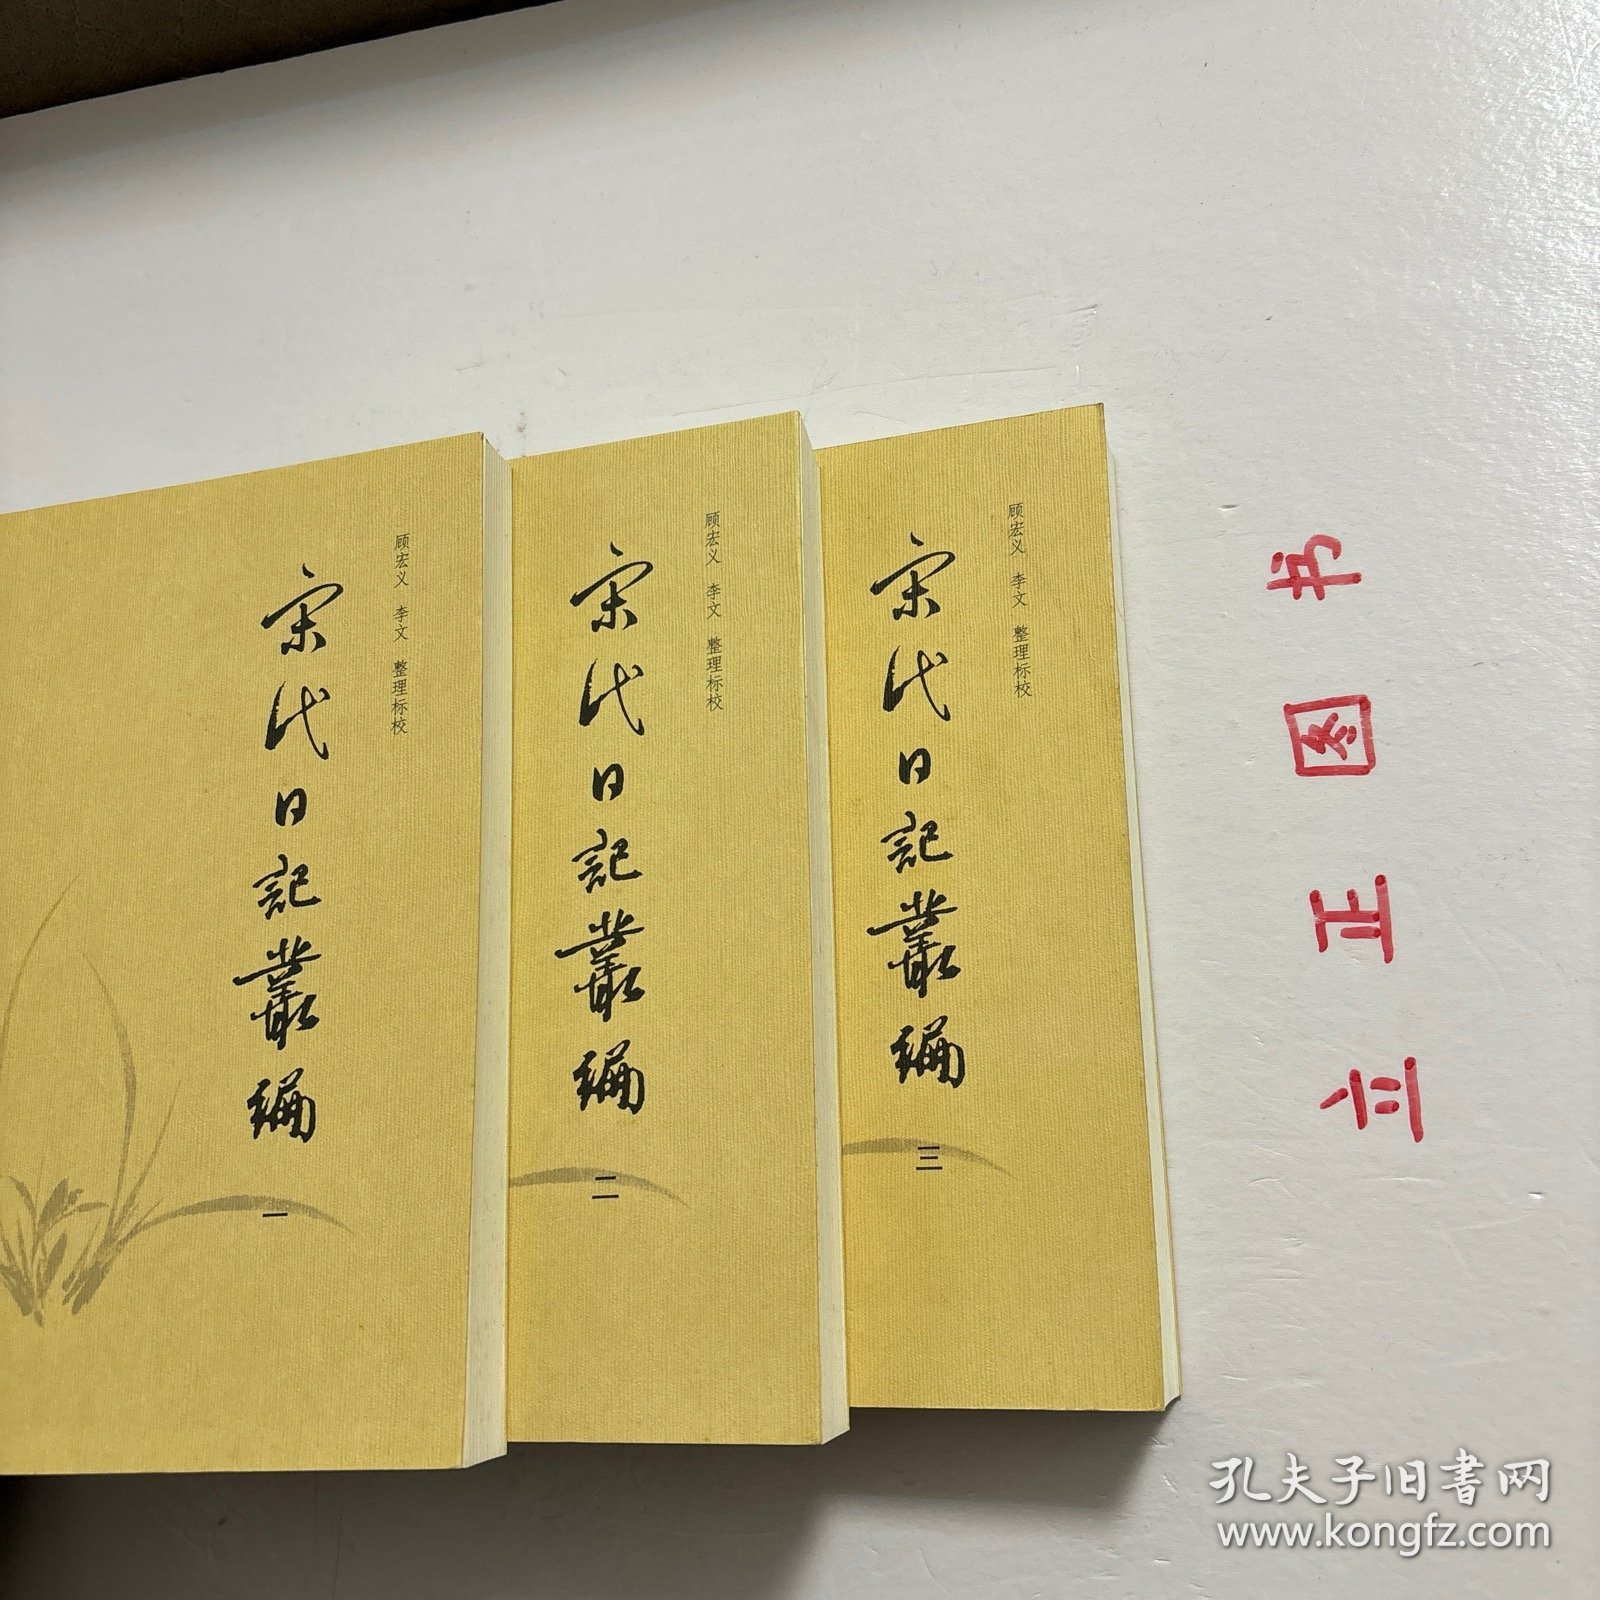 顾宏义 李文 整理标校
宋代日記叢編
一
顾宏义 李文 整理标校
宋代日記叢編
二
顾宏义 李文 整理标校
宋代日記叢編
三
立正图书
孔夫子旧书网
www.kongfz.com